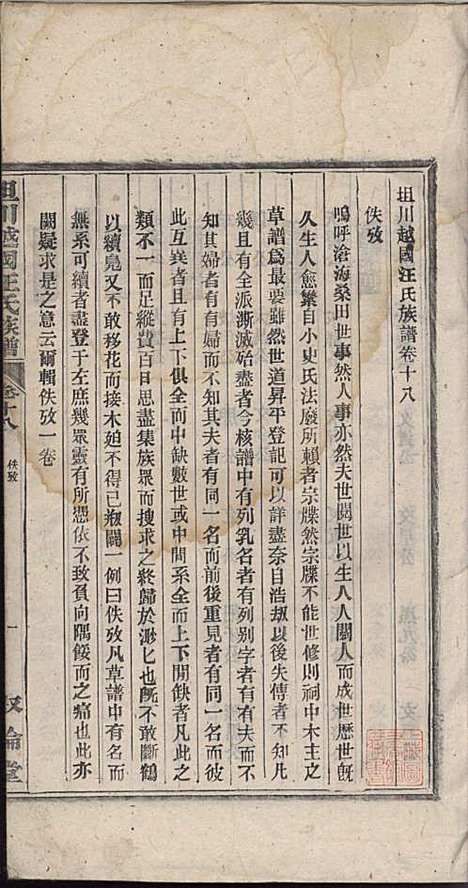 坦川越國汪氏族譜卷十八
佚攷
嗚呼滄海桑田世事然人事亦然夫世閱世以生人人閱人而成世歷世旣
久生人愈繁自小史氏法廢所賴者宗牒然宗牒不能世修則祠中木主之
草譜爲最要雖然世道昇平登記可以詳盡奈自浩刼以後失傳者不知凡
幾且有全派澌滅殆盡者今核譜中有列乳名者有列别字者有有夫而不
知其婦者有有婦而不知其夫者有同一名而前後重見者有同一名而彼
此互異者且有上下俱全而中缺數世或中間系全而上下闕缺者凡此之
類不一而足縱費百日思盡集族眾而搜求之終歸於渺匕也旣不敢斷鶴
以續鳧又不敢移花而接木廹不得已瓶闢一例曰佚攷凡草譜中有名而
無系可續者盡登于左庶幾眾靈有所慿依不致負向隅餒而之痛也此亦
闕疑求是之意云爾輯佚攷一卷
坦川越國汪氏族譜
卷十八
佚攷
一
敘倫堂